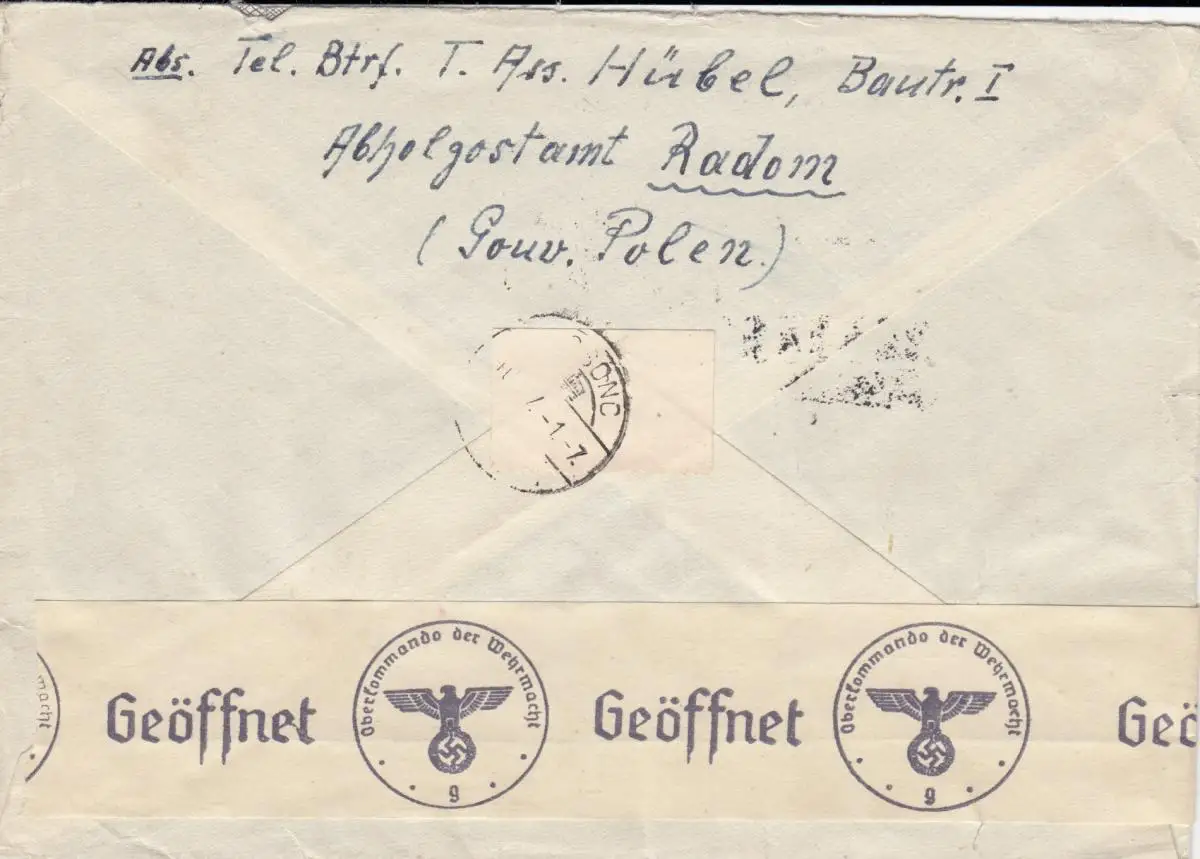 Abs. Tel. Btrf. T. Ass. Hübel, Bautr. I
Abholpostamt Radom
(Gouv. Polen.)
SONC
-1.-7.
macht
Geöffnet
Oberkommando der Wehrmacht
g
Geöffnet
Oberkommando der Wehrmacht
g
Geö